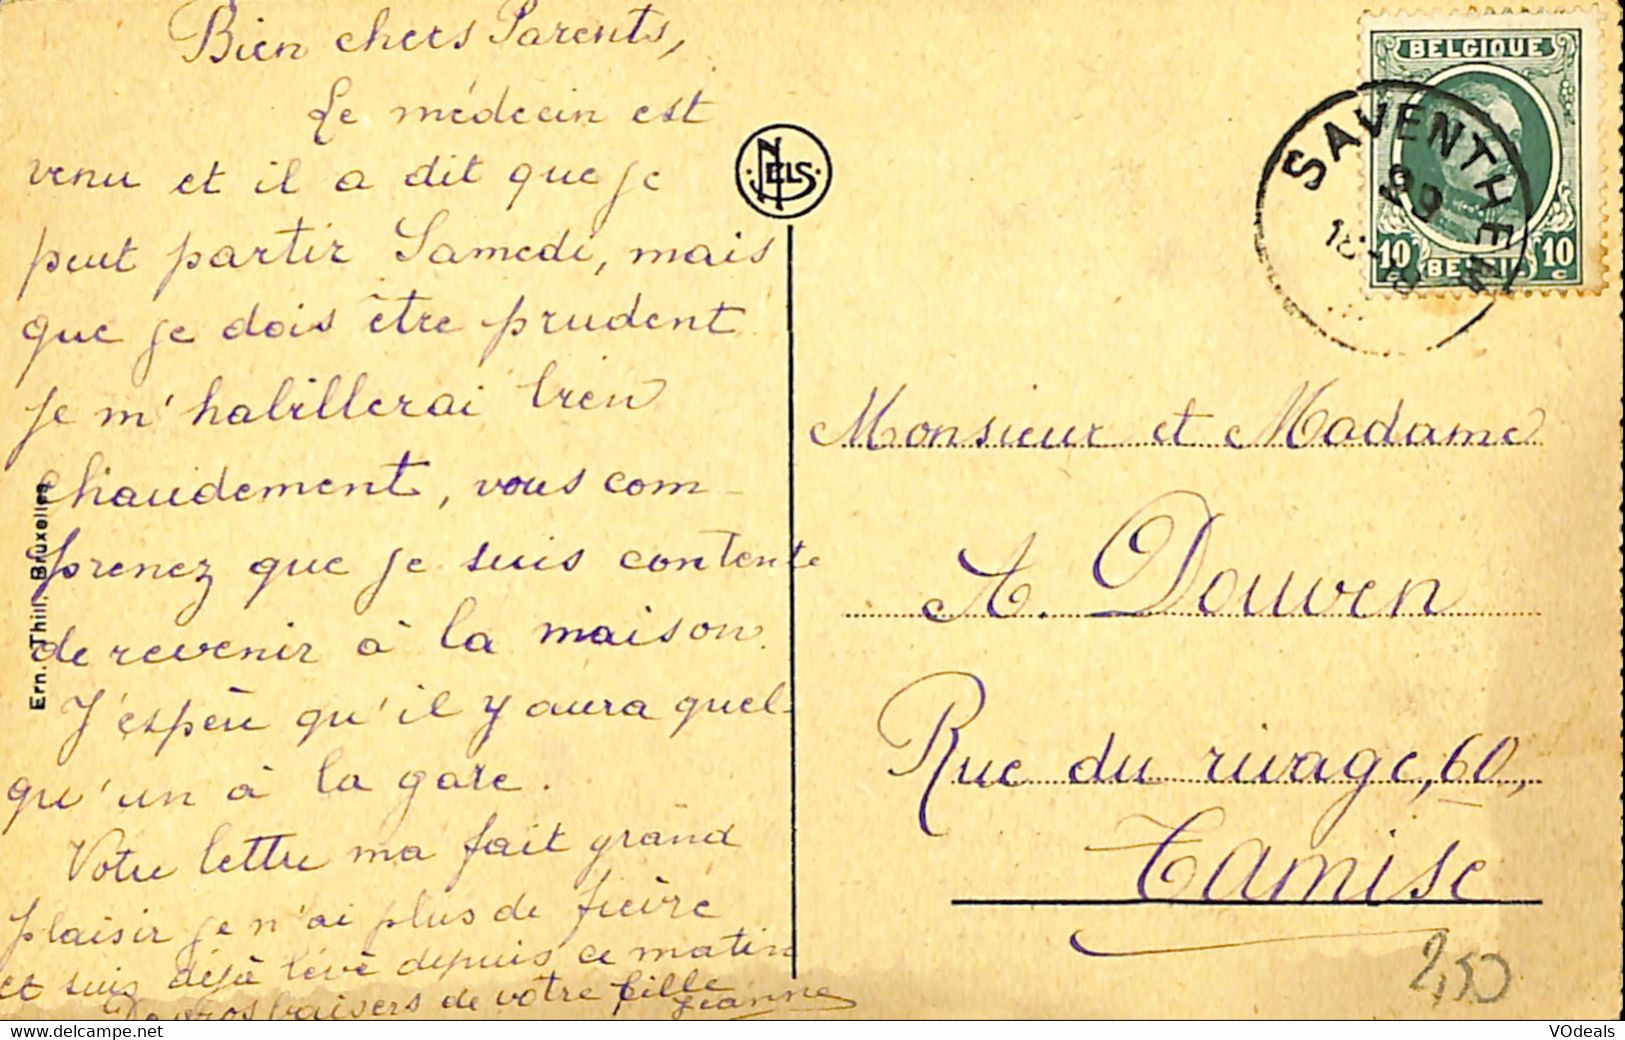 Bien chers Parents,
Le médecin est
venu et il a dit que je
peut partir Samedi, mais
que je dois être prudent
je m'habillerai bien
chaudement, vous com-
prenez que je suis contente
de revenir à la maison.
J'espère qu'il y aura quel-
qu'un à la gare.
Votre lettre ma fait grand
plaisir je n'ai plus de fièvre
et suis déjà levé depuis ce matin
De gros baisers de votre fille
Jeanne
Ern. Thill, Bruxelles
NELS
BELGIQUE
10 BELGIË 10
c c
SAVENTHEM
Monsieur et Madame
A. Douven
Rue du rivage, 60,
Tamise
2,50
www.delcampe.net
VOdeals